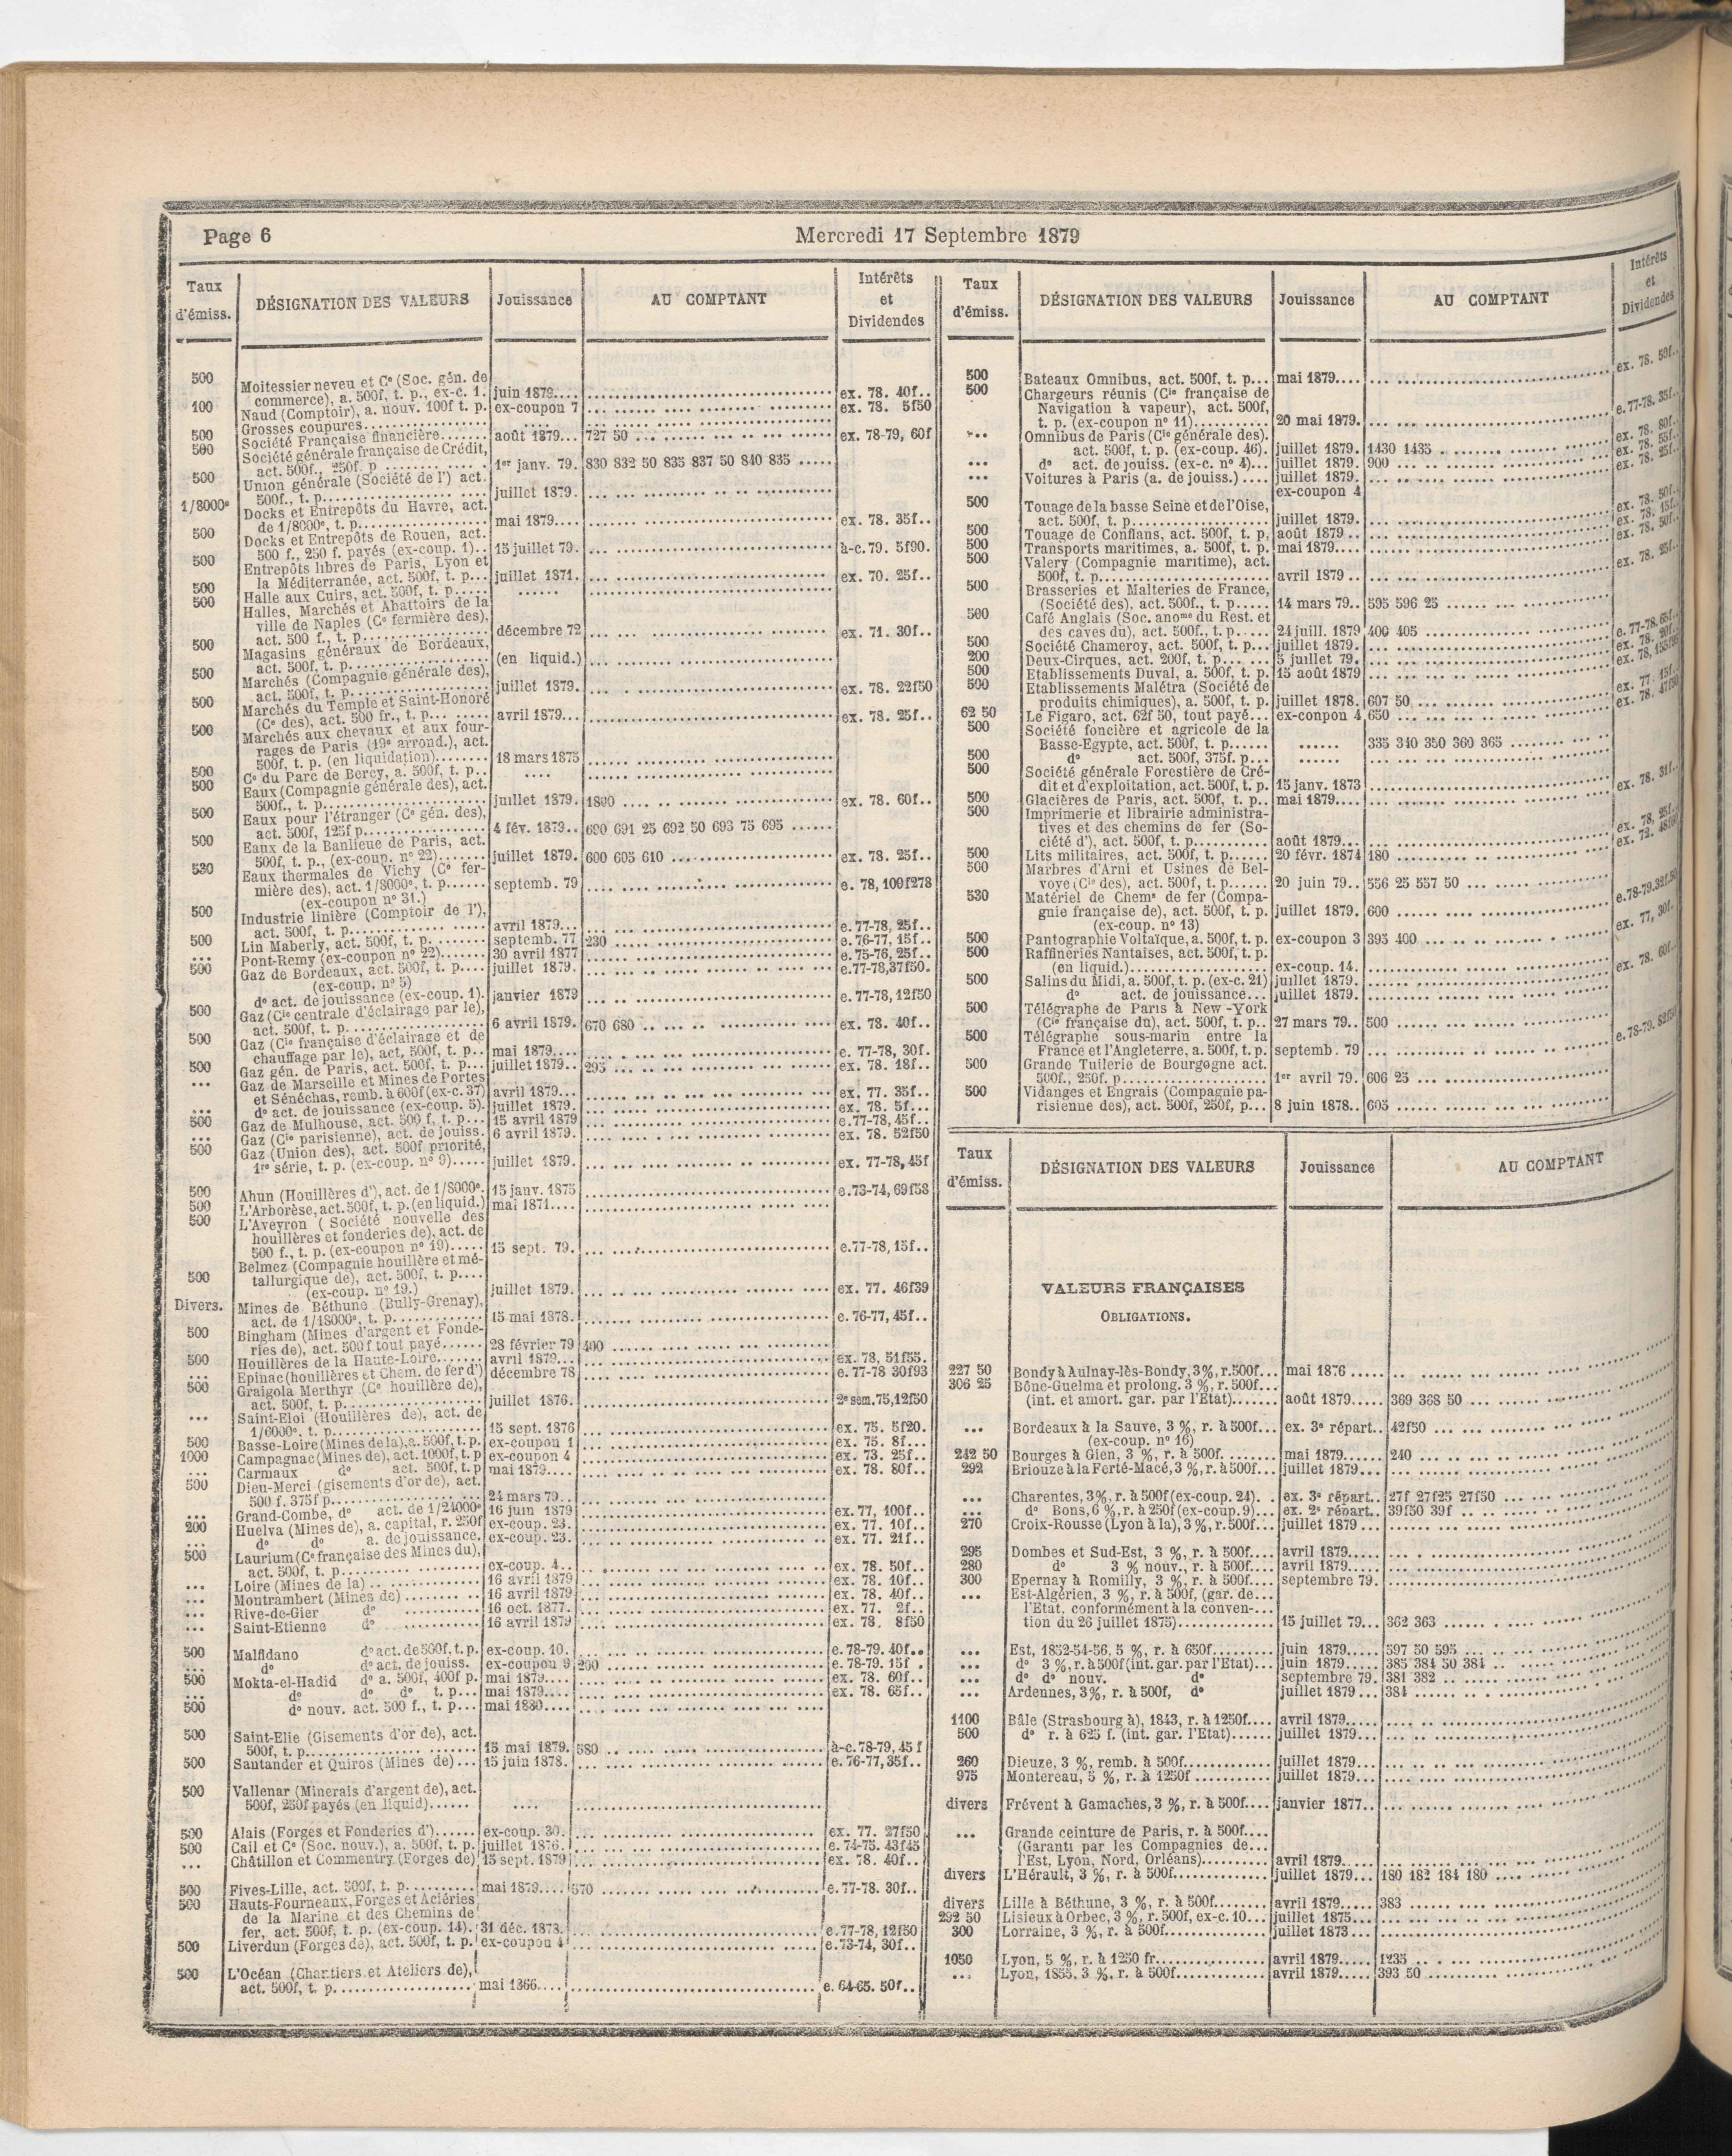 Page 6
Mercredi 17 Septembre 1879
Taux d'émiss. DÉSIGNATION DES VALEURS Jouissance AU COMPTANT Intérêts et Dividendes
500 Moitessier neveu et Cᵉ (Soc. gén. de
commerce), a. 500f, t. p., ex-c. 1. juin 1879.... ex. 78. 40f..
100 Naud (Comptoir), a. nouv. 100f t. p. ex-coupon 7 ex. 78. 5f50
Grosses coupures
500 Société Française financière....... août 1879... 727 50 ex. 78-79, 60f
500 Société générale française de Crédit,
act. 500f., 250f. p 1ᵉʳ janv. 79. 830 832 50 835 837 50 840 835
500 Union générale (Société de l') act.
500f., t. p. juillet 1879.
1/8000ᵉ Docks et Entrepôts du Havre, act.
de 1/8000ᵉ, t. p. mai 1879.... ex. 78. 35f..
500 Docks et Entrepôts de Rouen, act.
500 f., 250 f. payés (ex-coup. 1).. 15 juillet 79. à-c.79. 5f90.
500 Entrepôts libres de Paris, Lyon et
la Méditerranée, act. 500f, t. p... juillet 1871. ex. 70. 25f..
500 Halle aux Cuirs, act. 500f, t. p.....
500 Halles, Marchés et Abattoirs de la
ville de Naples (Cᵉ fermière des),
act. 500 f., t. p. décembre 72 ex. 71. 30f..
500 Magasins généraux de Bordeaux,
act. 500f, t. p. (en liquid.)
500 Marchés (Compagnie générale des),
act. 500f, t. p. juillet 1879. ex. 78. 22f50
500 Marchés du Temple et Saint-Honoré
(Cᵉ des), act. 500 fr., t. p. avril 1879... ex. 78. 25f..
500 Marchés aux chevaux et aux four-
rages de Paris (19ᵉ arrond.), act.
500f, t. p. (en liquidation)........ 18 mars 1875
500 Cᵉ du Parc de Bercy, a. 500f, t. p..
500 Eaux (Compagnie générale des), act.
500f., t. p. juillet 1879. 1800 ex. 78. 60f..
500 Eaux pour l'étranger (Cᵉ gén. des),
act. 500f, 125f p. 4 fév. 1879.. 690 691 25 692 50 693 75 695
500 Eaux de la Banlieue de Paris, act.
500f, t. p., (ex-coup. nᵒ 22)....... juillet 1879. 600 605 610 ex. 78. 25f..
530 Eaux thermales de Vichy (Cᵉ fer-
mière des), act. 1/8000ᵉ, t. p...... septemb. 79 e. 78, 100f278
(ex-coupon nᵒ 31.)
500 Industrie linière (Comptoir de l'),
act. 500f, t. p. avril 1879... e. 77-78, 25f..
500 Lin Maberly, act. 500f, t. p. septemb. 77 230 e. 76-77, 15f..
... Pont-Remy (ex-coupon nᵒ 22)....... 30 avril 1877 e. 75-76, 25f..
500 Gaz de Bordeaux, act. 500f, t. p.... juillet 1879. e.77-78,37f50.
(ex-coup. nᵒ 5)
dᵒ act. de jouissance (ex-coup. 1). janvier 1879 e. 77-78, 12f50
500 Gaz (Cⁱᵉ centrale d'éclairage par le),
act. 500f, t. p. 6 avril 1879. 670 680 ex. 78. 40f..
500 Gaz (Cⁱᵉ française d'éclairage et de
chauffage par le), act. 500f, t. p... mai 1879.... e. 77-78, 30f.
500 Gaz gén. de Paris, act. 500f, t. p... juillet 1879.. 295 ex. 78. 18f..
... Gaz de Marseille et Mines de Portes
et Sénéchas, remb. à 600f (ex-c. 37) avril 1879... ex. 77. 35f..
... dᵒ act. de jouissance (ex-coup. 5). juillet 1879. ex. 78. 5f...
500 Gaz de Mulhouse, act. 500 f, t. p... 15 avril 1879 e.77-78, 45f..
... Gaz (Cⁱᵉ parisienne), act. de jouiss. 6 avril 1879. ex. 78. 52f50
500 Gaz (Union des), act. 500f priorité,
1ʳᵉ série, t. p. (ex-coup. nᵒ 9)..... juillet 1879. ex. 77-78, 45f
500 Ahun (Houillères d'), act. de 1/8000ᵉ. 15 janv. 1875 e.73-74, 69f58
500 L'Arborèse, act. 500f, t. p. (en liquid.) mai 1871....
500 L'Aveyron ( Société nouvelle des
houillères et fonderies de), act. de
500 f., t. p. (ex-coupon nᵒ 19)..... 15 sept. 79. e.77-78, 15f..
500 Belmez (Compagnie houillère et mé-
tallurgique de), act. 500f, t. p....
(ex-coup. nᵒ 19.) juillet 1879. ex. 77. 46f39
Divers. Mines de Béthune (Bully-Grenay),
act. de 1/18000ᵉ, t. p. 15 mai 1878. e. 76-77, 45f..
500 Bingham (Mines d'argent et Fonde-
ries de), act. 500 f tout payé...... 28 février 79 400
500 Houillères de la Haute-Loire....... avril 1879... ex. 78, 51f55.
... Epinac (houillères et Chem. de fer d') décembre 78 e. 77-78 30f93
500 Graigola Merthyr (Cᵉ houillère de),
act. 500f, t. p. juillet 1876. 2ᵉ sem.75,12f50
... Saint-Eloi (Houillères de), act. de
1/6000ᵉ, t. p. 15 sept. 1876 ex. 75. 5f20.
500 Basse-Loire (Mines de la), a. 500f, t. p. ex-coupon 1 ex. 75. 8f...
1000 Campagnac (Mines de), act. 1000f, t. p ex-coupon 4 ex. 73. 25f..
... Carmaux dᵒ act. 500f, t. p mai 1879.... ex. 78. 80f..
500 Dieu-Merci (gisements d'or de), act.
500 f. 375f p. 24 mars 79..
... Grand-Combe, dᵒ act. de 1/24000ᵉ 16 juin 1879 ex. 77, 100f..
200 Huelva (Mines de), a. capital, r. 250f ex-coup. 23. ex. 77. 10f..
... dᵒ dᵒ a. de jouissance. ex-coup. 23. ex. 77. 21f..
500 Laurium (Cᵉ française des Mines du),
act. 500f, t. p. ex-coup. 4.. ex. 78. 50f..
... Loire (Mines de la) 16 avril 1879 ex. 78. 10f..
... Montrambert (Mines de) 16 avril 1879 ex. 78. 40f..
... Rive-de-Gier dᵒ 16 oct. 1877. ex. 77. 2f..
... Saint-Etienne dᵒ 16 avril 1879 ex. 78. 8f50
500 Malfidano dᵒ act. de 500f, t. p. ex-coup. 10. e. 78-79. 40f..
... dᵒ dᵒ act. de jouiss. ex-coupon 9 e. 78-79. 15f .
500 Mokta-el-Hadid dᵒ a. 500f, 400f p. mai 1879.... ex. 78. 60f..
... dᵒ dᵒ dᵒ t. p... mai 1879.... ex. 78. 65f..
500 dᵒ nouv. act. 500 f., t. p... mai 1880....
500 Saint-Elie (Gisements d'or de), act.
500f, t. p. 15 mai 1879. 580 à-c.78-79, 45 f
500 Santander et Quiros (Mines de)... 15 juin 1878. e. 76-77, 35f..
500 Vallenar (Minerais d'argent de), act.
500f, 250f payés (en liquid)......
500 Alais (Forges et Fonderies d')...... ex-coup. 30. ex. 77. 27f50
500 Cail et Cᵉ (Soc. nouv.), a. 500f, t. p. juillet 1876. e. 74-75. 43f45
... Châtillon et Commentry (Forges de) 15 sept. 1879 ex. 78. 40f..
500 Fives-Lille, act. 500f, t. p. mai 1879.... 570 e. 77-78. 30f..
500 Hauts-Fourneaux, Forges et Aciéries
de la Marine et des Chemins de
fer, act. 500f, t. p. (ex-coup. 14). 31 déc. 1878. e.77-78, 12f50
500 Liverdun (Forges de), act. 500f, t. p. ex-coupon 4 e.73-74, 30f..
500 L'Océan (Chantiers et Ateliers de),
act. 500f, t. p. mai 1866.... e. 64-65. 50f..
Taux d'émiss. DÉSIGNATION DES VALEURS Jouissance AU COMPTANT Intérêts et Dividendes
500 Bateaux Omnibus, act. 500f, t. p... mai 1879.... ex. 78. 50f..
500 Chargeurs réunis (Cⁱᵉ française de
Navigation à vapeur), act. 500f,
t. p. (ex-coupon nᵒ 11)........... 20 mai 1879. e.77-78. 35f..
... Omnibus de Paris (Cⁱᵉ générale des).
act. 500f, t. p. (ex-coup. 46). juillet 1879. 1430 1435 ex. 78. 80f..
... dᵒ act. de jouiss. (ex-c. nᵒ 4)... juillet 1879. 900 ex. 78. 55f..
... Voitures à Paris (a. de jouiss.) .... juillet 1879. ex. 78. 25f..
ex-coupon 4
500 Touage de la basse Seine et de l'Oise,
act. 500f, t. p. juillet 1879. ex. 78. 50f..
500 Touage de Conflans, act. 500f, t. p. août 1879 .. ex. 78. 15f..
500 Transports maritimes, a. 500f, t. p. mai 1879.... ex. 78. 50f..
500 Valery (Compagnie maritime), act.
500f, t. p. avril 1879 .. ex. 78. 25f..
500 Brasseries et Malteries de France,
(Société des), act. 500f., t. p..... 14 mars 79.. 595 596 25
500 Café Anglais (Soc. anoᵐᵉ du Rest. et
des caves du), act. 500f., t. p..... 24 juill. 1879 400 405
500 Société Chameroy, act. 500f, t. p... juillet 1879. e. 77-78. 65f..
200 Deux-Cirques, act. 200f, t. p. 5 juillet 79. ex. 78. 20f..
500 Etablissements Duval, a. 500f, t. p. 15 août 1879
500 Etablissements Malétra (Société de
produits chimiques), a. 500f, t. p. juillet 1878. 607 50 ex. 77. 15f..
62 50 Le Figaro, act. 62f 50, tout payé... ex-conpon 4 650 ex. 78. 47f50
500 Société foncière et agricole de la
Basse-Egypte, act. 500f, t. p...... 335 340 350 360 365
500 dᵒ act. 500f, 375f. p...
500 Société générale Forestière de Cré-
dit et d'exploitation, act. 500f, t. p. 15 janv. 1873
500 Glacières de Paris, act. 500f, t. p.. mai 1879.... ex. 78. 31f..
500 Imprimerie et librairie administra-
tives et des chemins de fer (So-
ciété d'), act. 500f, t. p. août 1879... ex. 78, 25f..
500 Lits militaires, act. 500f, t. p...... 20 févr. 1874 180 ex. 72. 48f60
500 Marbres d'Arni et Usines de Bel-
voye (Cⁱᵉ des), act. 500f, t. p...... 20 juin 79.. 556 25 557 50
530 Matériel de Chemˢ de fer (Compa-
gnie française de), act. 500f, t. p. juillet 1879. 600 e.78-79.32f.50
(ex-coup. nᵒ 13)
500 Pantographie Voltaïque, a. 500f, t. p. ex-coupon 3 395 400
500 Raffineries Nantaises, act. 500f, t. p.
(en liquid.) ex-coup. 14. ex. 77, 30f.
500 Salins du Midi, a. 500f, t. p. (ex-c. 21) juillet 1879. ex. 78. 60f..
dᵒ act. de jouissance... juillet 1879.
500 Télégraphe de Paris à New-York
(Cⁱᵉ française du), act. 500f, t. p.. 27 mars 79.. 500
500 Télégraphe sous-marin entre la
France et l'Angleterre, a. 500f, t. p. septemb. 79 e.78-79. 82f50
500 Grande Tuilerie de Bourgogne act.
500f., 250f. p. 1ᵉʳ avril 79. 606 25
500 Vidanges et Engrais (Compagnie pa-
risienne des), act. 500f, 250f, p... 8 juin 1878.. 605
Taux d'émiss. DÉSIGNATION DES VALEURS Jouissance AU COMPTANT
VALEURS FRANÇAISES
OBLIGATIONS.
227 50 Bondy à Aulnay-lès-Bondy, 3%, r. 500f... mai 1876 .....
306 25 Bône-Guelma et prolong. 3 %, r. 500f...
(int. et amort. gar. par l'Etat)....... août 1879..... 369 368 50
... Bordeaux à la Sauve, 3 %, r. à 500f... ex. 3ᵉ répart.. 42f50
(ex-coup. nᵒ 16)
242 50 Bourges à Gien, 3 %, r. à 500f. mai 1879...... 240
292 Briouze à la Ferté-Macé, 3 %, r. à 500f... juillet 1879...
... Charentes, 3%, r. à 500f (ex-coup. 24). ex. 3ᵉ répart.. 27f 27f25 27f50
... dᵒ Bons, 6 %, r. à 250f (ex-coup. 9)... ex. 2ᵉ répart.. 39f50 39f
270 Croix-Rousse (Lyon à la), 3 %, r. 500f... juillet 1879 ...
295 Dombes et Sud-Est, 3 %, r. à 500f.... avril 1879.....
280 dᵒ 3 % nouv., r. à 500f.... avril 1879.....
300 Epernay à Romilly, 3 %, r. à 500f.... septembre 79.
... Est-Algérien, 3 %, r. à 500f, (gar. de...
l'Etat, conformément à la conven-...
tion du 26 juillet 1875)............. 15 juillet 79... 362 363
... Est, 1852-54-56, 5 %, r. à 650f........ juin 1879..... 597 50 595
... dᵒ 3 %, r. à 500f (int. gar. par l'Etat)... juin 1879..... 385 384 50 384
... dᵒ dᵒ nouv. dᵒ septembre 79. 381 382
... Ardennes, 3%, r. à 500f, dᵒ juillet 1879... 384
1100 Bâle (Strasbourg à), 1843, r. à 1250f.... avril 1879.....
500 dᵒ r. à 625 f. (int. gar. l'Etat)...... juillet 1879...
260 Dieuze, 3 %, remb. à 500f............. juillet 1879...
975 Montereau, 5 %, r. à 1250f ........... juillet 1879...
divers Frévent à Gamaches, 3 %, r. à 500f.... janvier 1877..
... Grande ceinture de Paris, r. à 500f....
(Garanti par les Compagnies de...
l'Est, Lyon, Nord, Orléans).......... avril 1879.....
divers L'Hérault, 3 %, r. à 500f............. juillet 1879... 180 182 184 180
divers Lille à Béthune, 3 %, r. à 500f........ avril 1879..... 383
292 50 Lisieux à Orbec, 3 %, r. 500f, ex-c. 10... juillet 1875...
300 Lorraine, 3 %, r. à 500f.............. juillet 1873 ...
1050 Lyon, 5 %, r. à 1250 fr............... avril 1879..... 1235
... Lyon, 1855, 3 %, r. à 500f............ avril 1879..... 393 50